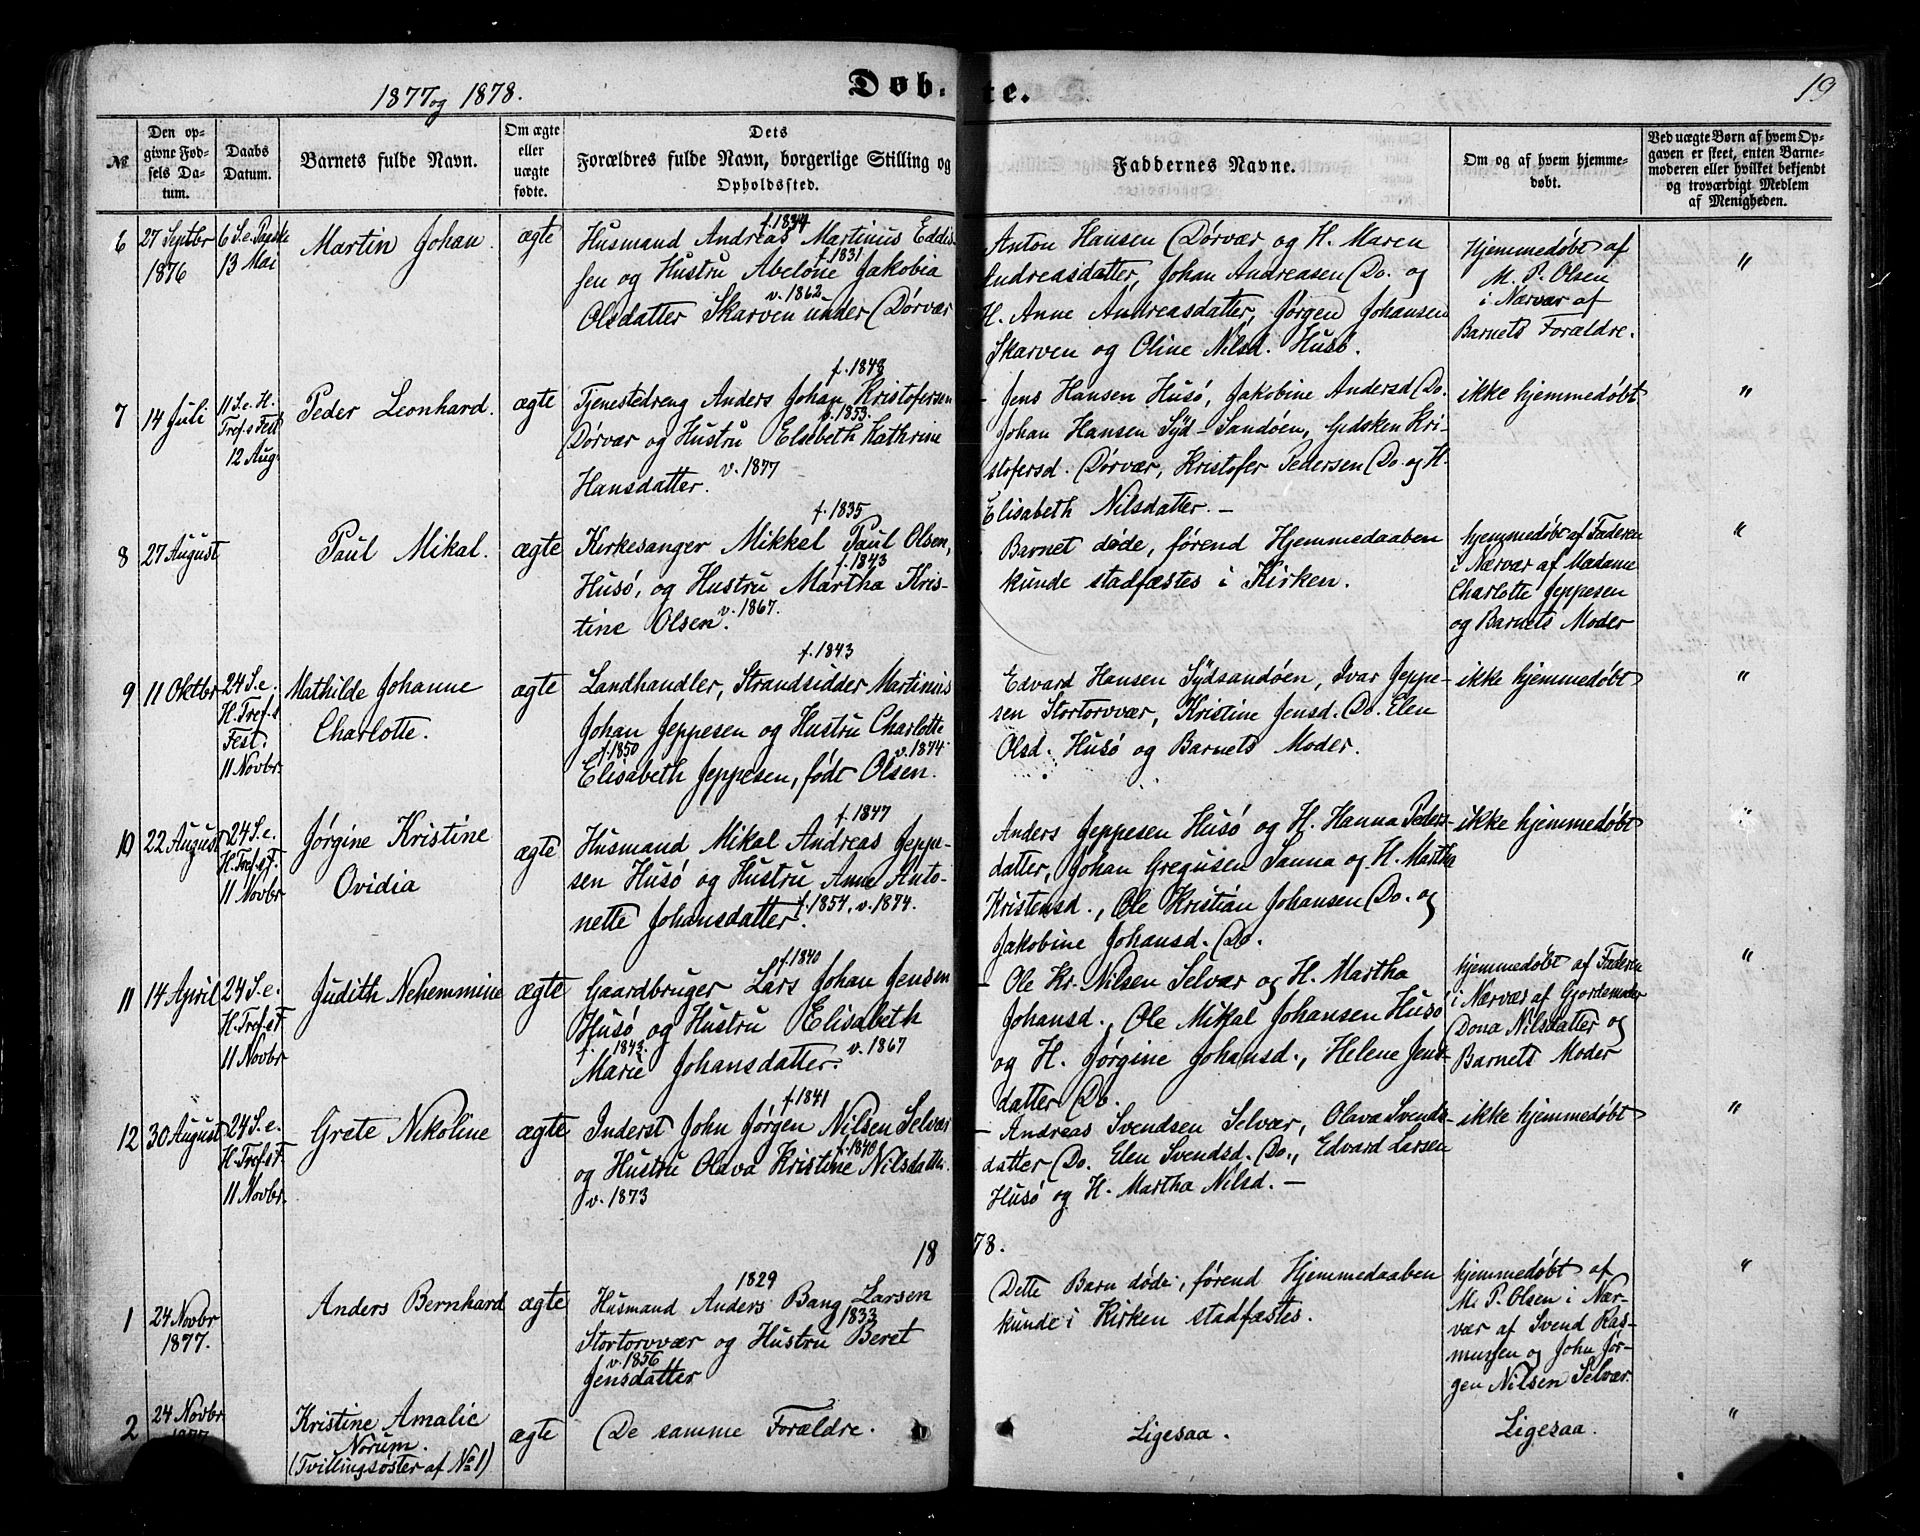 1877 og 1878.
Døb-
te.
19
№
Den op-
givne Fød-
sels Da-
tum.
Daabs
Datum.
Barnets fulde Navn.
Om ægte
eller
uægte
fødte.
Dets
Forældres fulde Navn, borgerlige Stilling og
Opholdssted.
Faddernes Navne.
Om og af hvem hjemme-
døbt.
Ved uægte Børn af hvem Op-
gaven er skeet, enten Barne-
moderen eller hvilket bekjendt
og troværdigt Medlem
af Menigheden.
6
27 Septbr
1876
6 S. e. Paaske
13 Mai
Martin Johan.
ægte
f. 1834
Husmand Andreas Martinus Eddis-
f. 1831
sen og Hustru Abelone Jakobia
v. 1862
Olsdatter Skarven under Dørvær
Anton Hansen Dørvær og H. Maren
Andreasdatter, Johan Andreasen Do. og
H. Anne Andreasdatter, Jørgen Johansen
Skarven og Oline Nilsd. Husø.
Hjemmedøbt af
M. P. Olsen
i Nærvær af
Barnets Forældre.
"
7
14 Juli
11 S. e. H.
Tref.s Fest
12 Aug.
Peder Leonhard.
ægte
f. 1848
Tjenestedreng Anders Johan Kristofersen
f. 1853.
Dørvær og Hustru Elisbeth Kathrine
Hansdatter. v. 1877
Jens Hansen Husø, Jakobine Andersd. Do.
Johan Hansen Syd-Sandøen, Gidsken Kri-
stofersd. Dørvær, Kristofer Pedersen Do. og H.
Elisabeth Nilsdatter. -
ikke hjemmedøbt
"
8
27 August
Paul Mikal.
ægte
f. 1835
Kirkesanger Mikkel Paul Olsen,
f. 1843
Husø, og Hustru Martha Kris-
tine Olsen. v. 1867.
Barnet døde, førend Hjemmedaaben
kunde stadfæstes i Kirken.
hjemmedøbt af Faderen
i Nærvær af Madame
Charlotte Jeppesen
og Barnets Moder
"
9
11 Oktbr
24 S. e.
H. Tref.s
Fest.
11 Novbr.
Mathilde Johanne
Charlotte.
ægte
f. 1843
Landhandler, Strandsidder Martinus
Johan Jeppesen og Hustru Charlotte
f. 1850
v. 1874.
Elisabeth Jeppesen, født Olsen.
Edvard Hansen Sydsandøen, Ivar Jeppe-
sen Stortorvær, Kristine Jensd. Do. Elen
Olsd. Husø og Barnets Moder.
ikke hjemmedøbt
"
10
22 August
24 S. e.
H. Tref. s F.
11 Novbr
Jørgine Kristine
Ovidia
ægte
f. 1847
Husmand Mikal Andreas Jeppe-
sen Husø og Hustru Anne Anto-
nette Johansdatter. f. 1854, v. 1874.
Anders Jeppesen Husø og H. Hanna Peders-
datter, Johan Gregusen Sanna og H. Martha
Kristensd., Ole Kristian Johansen Do. og
Jakobine Johansd. Do.
ikke hjemmedøbt
"
11
14 April
24 S. e.
H. Tref. s F.
11 Novbr
Judith Nehemmine
ægte
f. 1840
Gaardbruger Lars Johan Jensen
Husø og Hustru Elisabeth
f. 1843.
Marie Johansdatter. v. 1867
Ole Kr. Nilsen Selvær og H. Martha
Johansd., Ole Mikal Johansen Husø
og H. Jørgine Johansd., Helene Jens-
datter Do.
hjemmedøbt af Faderen
i Nærvær af Gjordemoder
Dona Nilsdatter og
Barnets Moder
"
12
30 August
24 S. e.
H. Tref. s F.
11 Novbr.
Grete Nikoline
ægte
f. 1841
Inderst John Jørgen Nilsen Selvær
f. 1840
og Hustru Olava Kristine Nilsdatter.
v. 1873
Andreas Svendsen Selvær, Olava Svends-
datter Do. Elen Svendsd. Do., Edvard Larsen
Husø og H. Martha Nilsd. -
ikke hjemmedøbt
"
1878.
1
24 Novbr
1877.
Anders Bernhard
ægte
1829
Husmand Anders Bang Larsen
1833
Stortorvvær og Hustru Beret
v. 1856
Jensdatter
Dette Barn døde, førend Hjemmedaaben
kunde i Kirken stadfæstes.
hjemmedøbt af
M. P. Olsen i Nær-
vær af Svend Ras-
mussen og John Jør-
gen Nilsen Selvær.
"
2
24 Novbr
1877
Kristine Amalie
Norum.
(Tvillingsøster af No 1)
ægte
De samme Forældre.
Ligesaa.
Ligesaa.
"